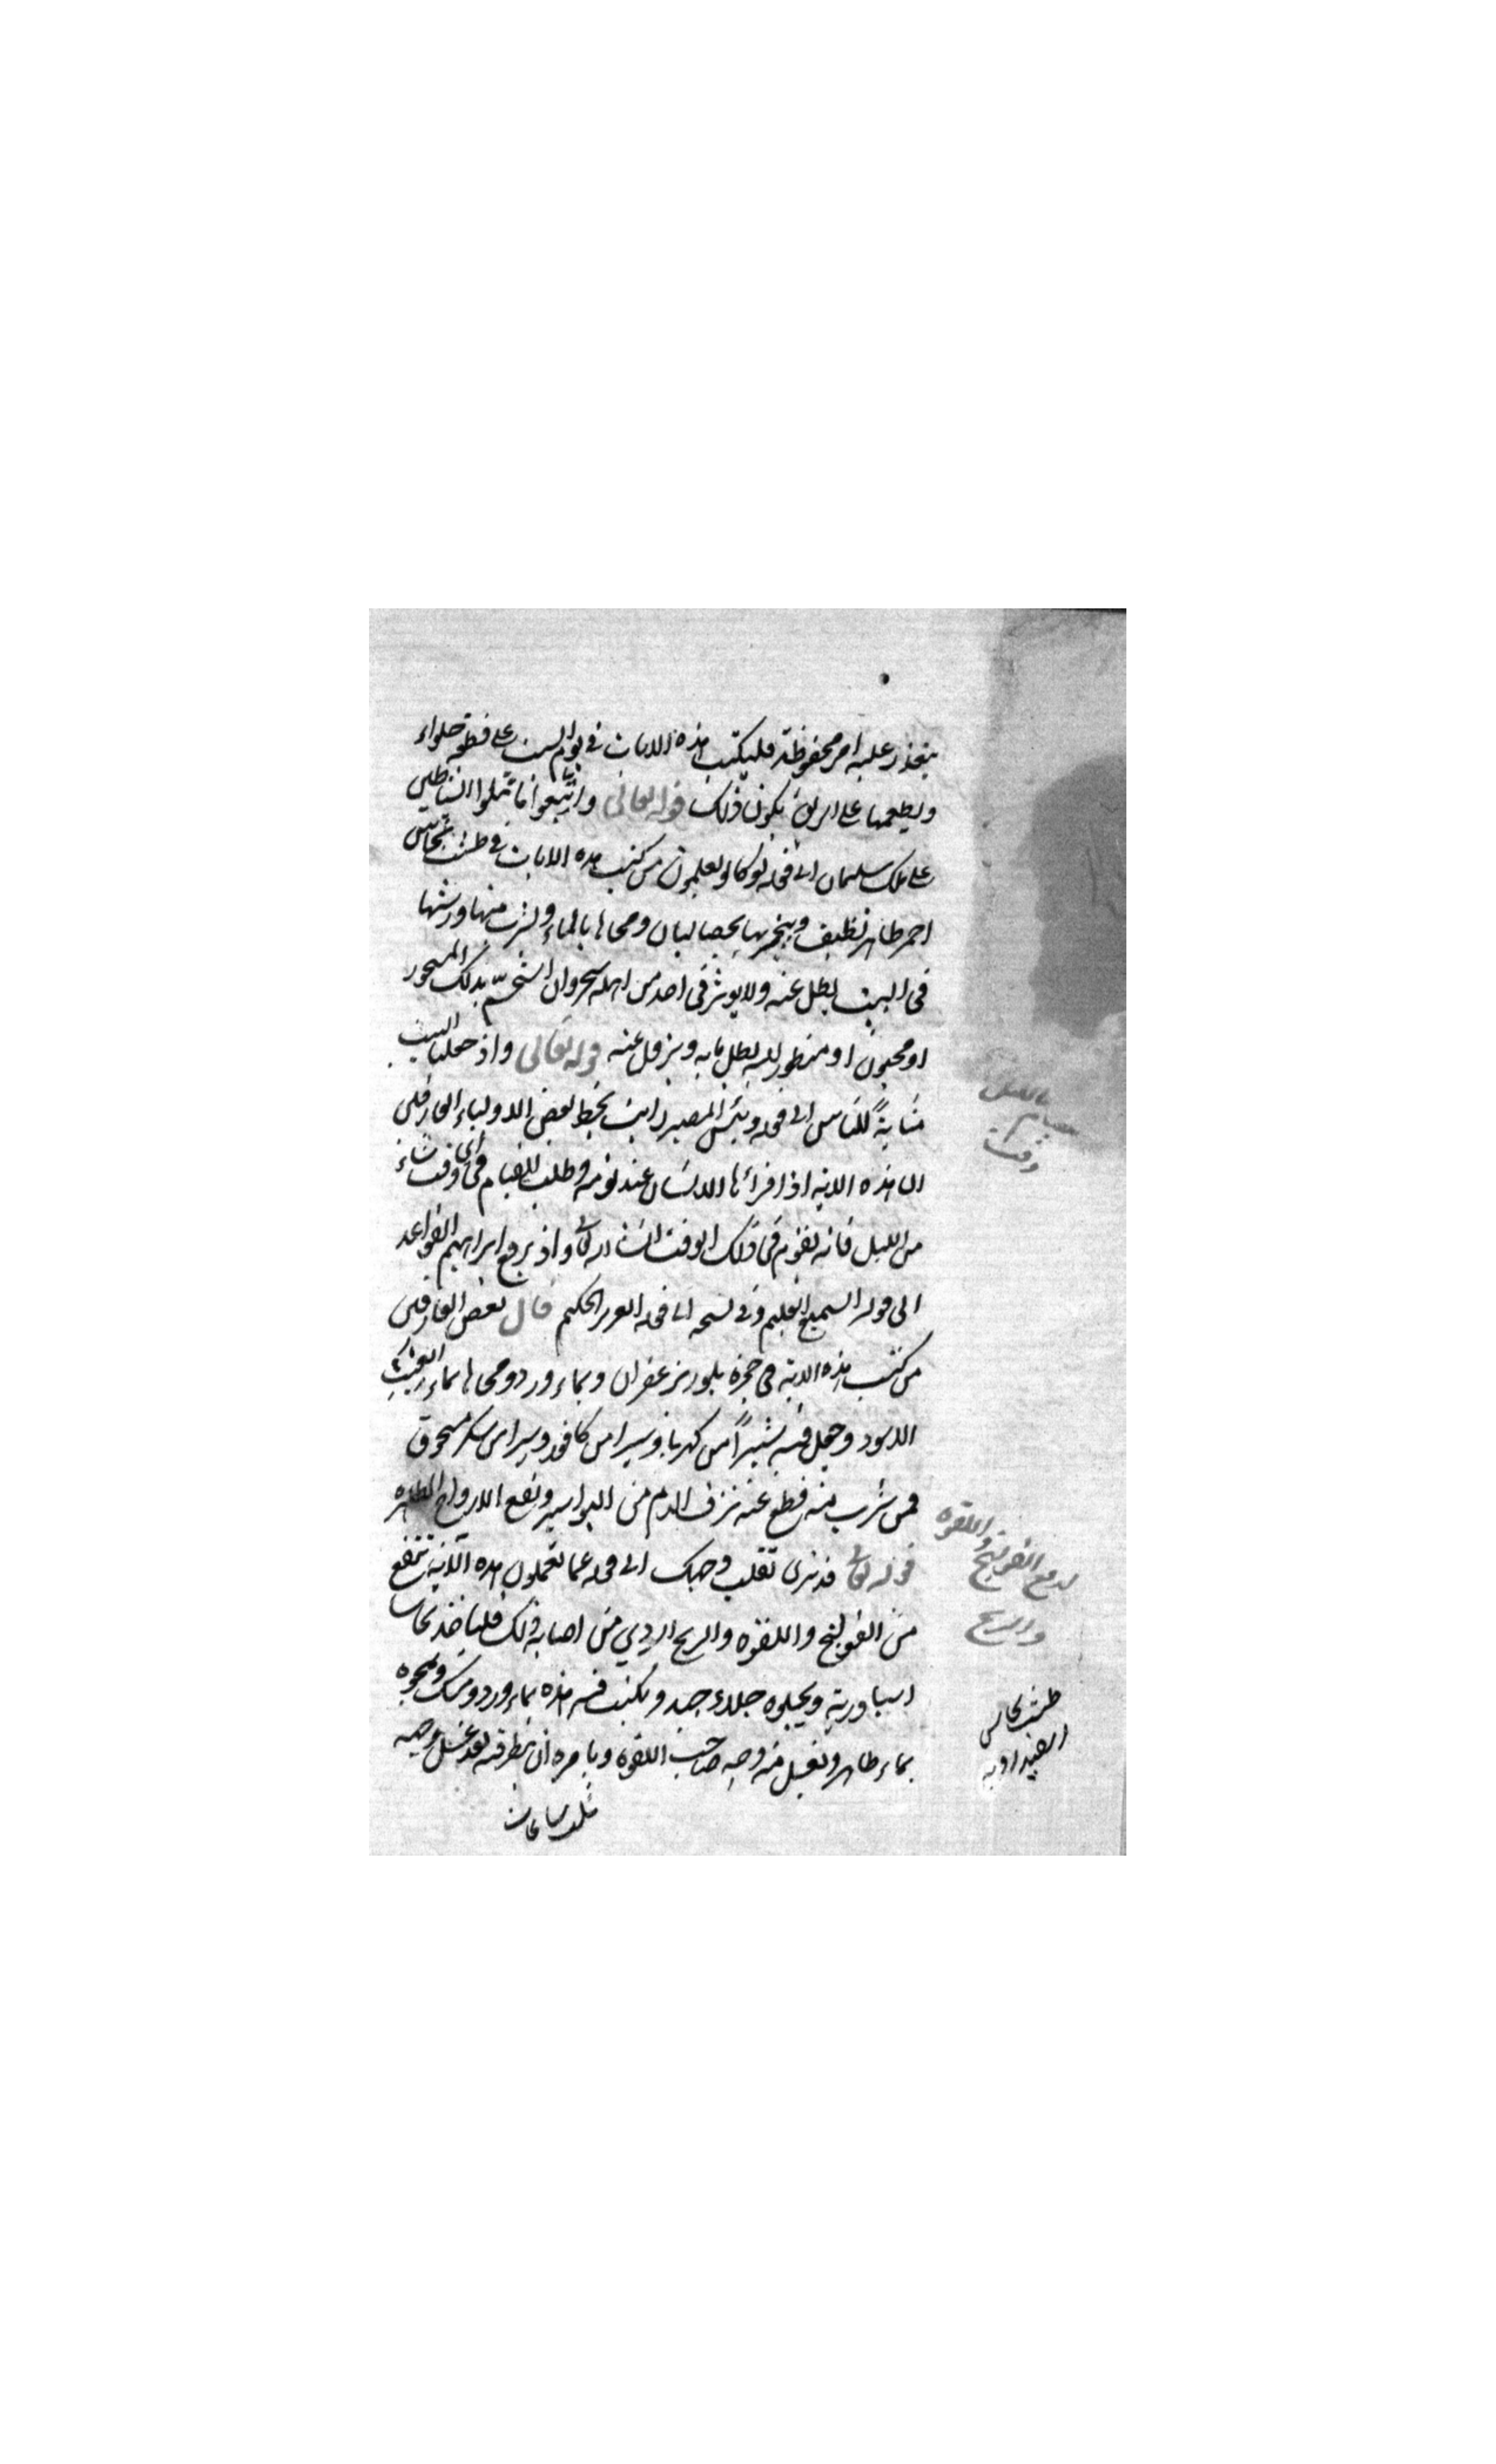 يتعذر عليه امر محفوظة فليكتب هذه الايات في يوم السبت على قطعة حلواء
ويطعمها على الريق يكون ذلك قوله تعالى واتبعوا ما تتلوا الشياطين
على ملك سليمان الى قوله لو كانوا يعلمون من كتب هذه الايات في طشت نحاس
احمر طاهر نظيف وبخرها بحصالبان ومحاها بالماء وشرب منها ورشها
في البيت بطل عنه ولا يوثر في احد من اهله سحر وان استحم بذلك المسحور
او مجنون او منظور اليه بطل ما به ويزول عنه قوله تعالى واذ جعلنا البيت
مثابةً للناس الى قوله وبئس المصير رايت بخط بعض الاولياء العارفين
ان هذه الاية اذا قرأها الانسان عند نومه وطلب القيام في اى وقت شاء
من الليل فانه يقوم في ذلك الوقت انشا الله تعالى واذ يرفع ابراهيم القواعد
الى قوله السميع العليم وفي نسخه الى قوله العزيز الحكيم قال بعض العارفين
من كتب هذه الاية في بلور بزعفران وبماء ورد ومحاها بماء العنب
الاسود وجعل فيه شيراً من كهربا ويسيرا من كافور ويسيرا من سكر مسحوق
فمن شرب منه قطع عنه نزف الدم من البواسير ونفع الارواح الطاهره
قوله تعالى قد نرى تقلب وجهك الى قوله عما تعملون هذه الاية تنفع
من القولنج واللقوه والريح الردي من اصابه ذلك فلياخذ نحاسا
ويجلوه جلاء جيد ويكتب فيه هذه بماء ورد ومسك ويمحوه
بماء طاهر ويغسل منه وجه صاحب اللقوه ويامره ان ينظر فيه بعد غسل وجهه
ثلث ساعات
وقت
لدفع القولنج واللقوه
والريح
طشت نحاس